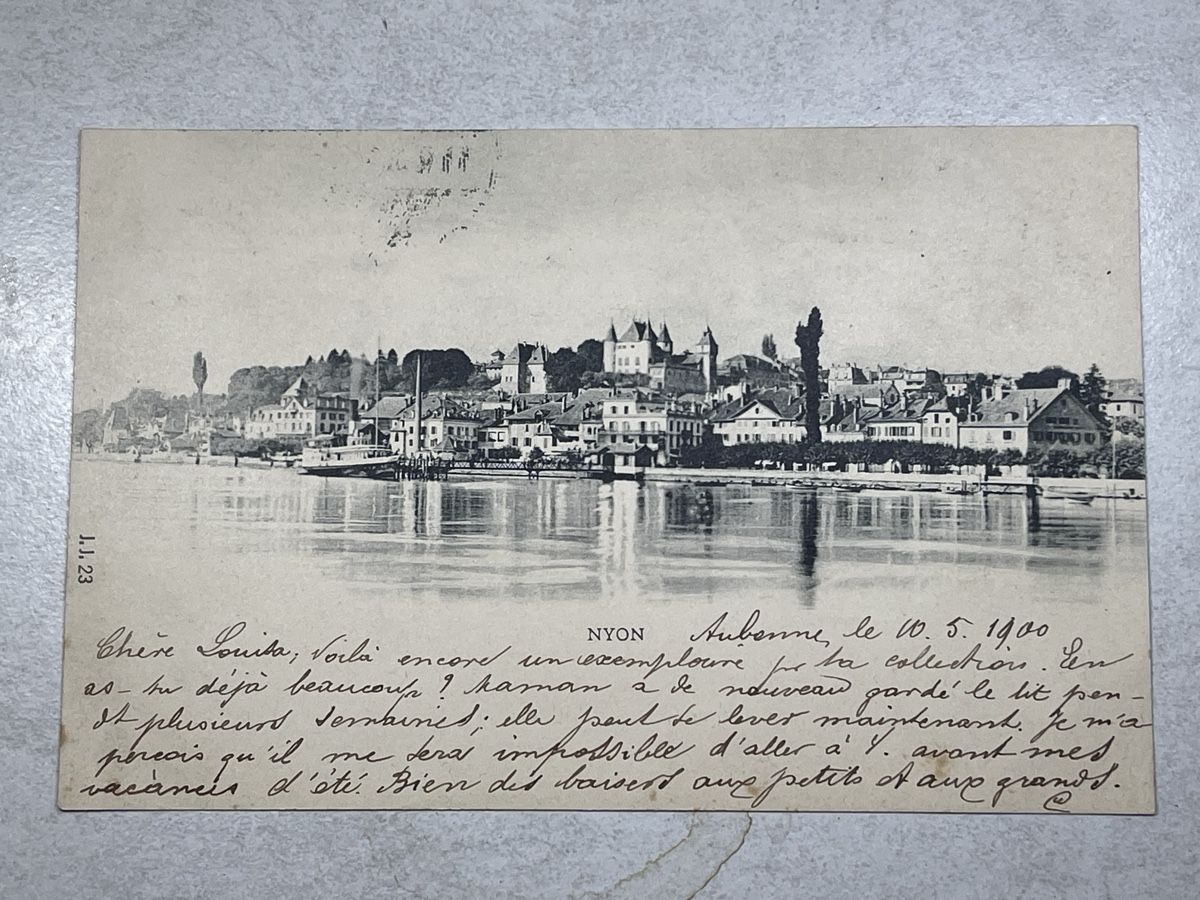 J.J. 23
NYON
Aubonne, le 10. 5. 1900
Chère Louisa, Voilà encore un exemplaire pr ta collection. En
as-tu déjà beaucoup? Maman a de nouveau gardé le lit pen-
dt plusieurs semaines; elle peut se lever maintenant. Je m'a
perçois qu'il me sera impossible d'aller à Y. avant mes
vacances d'été. Bien des baisers aux petits et aux grands.